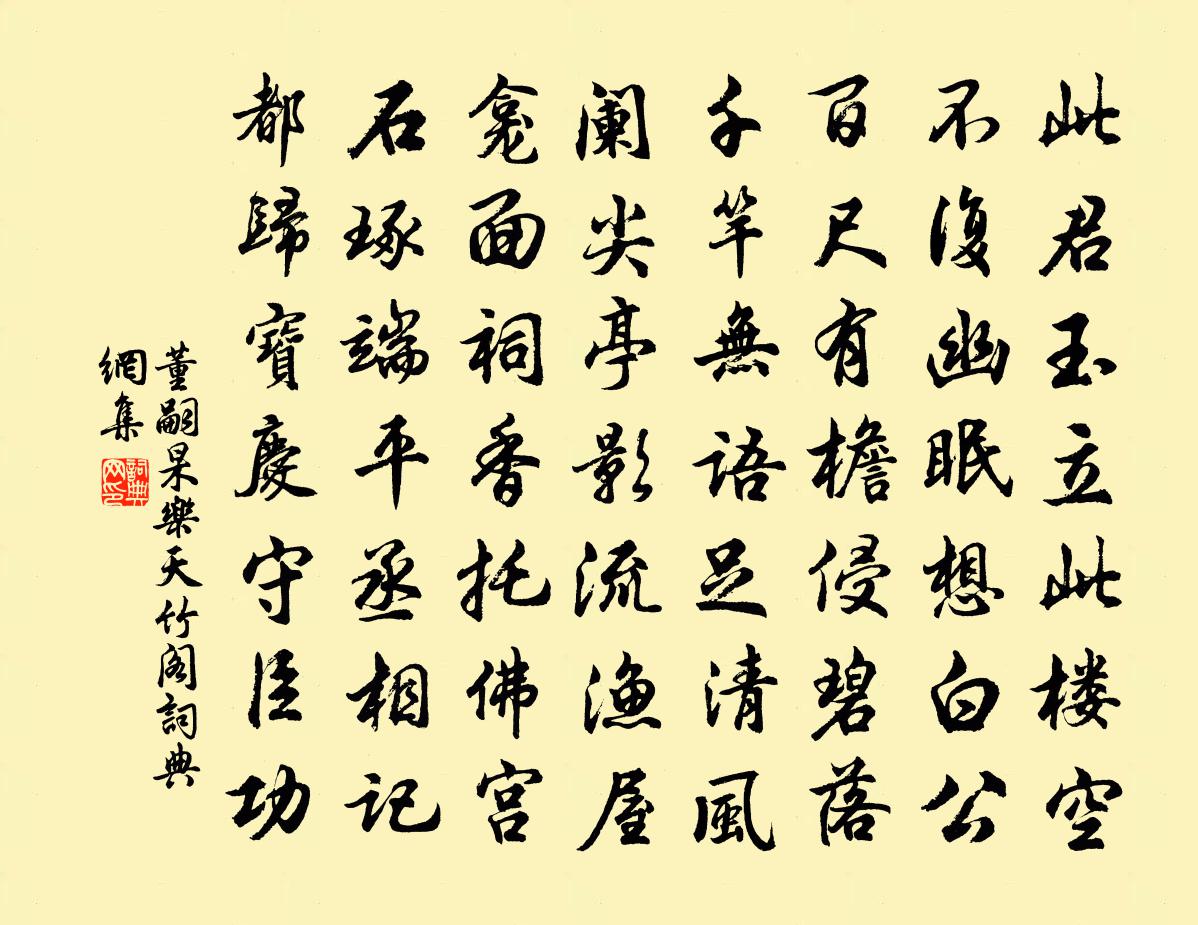 此君玉立此楼空
不復幽眠想白公
百尺有檐侵碧落
千竿無語足清風
阑尖亭影流渔屋
龛面祠香托佛宫
石琢端平丞相記
都歸寶慶守臣功
董嗣杲樂天竹阁詞典
網集
詞典
网印